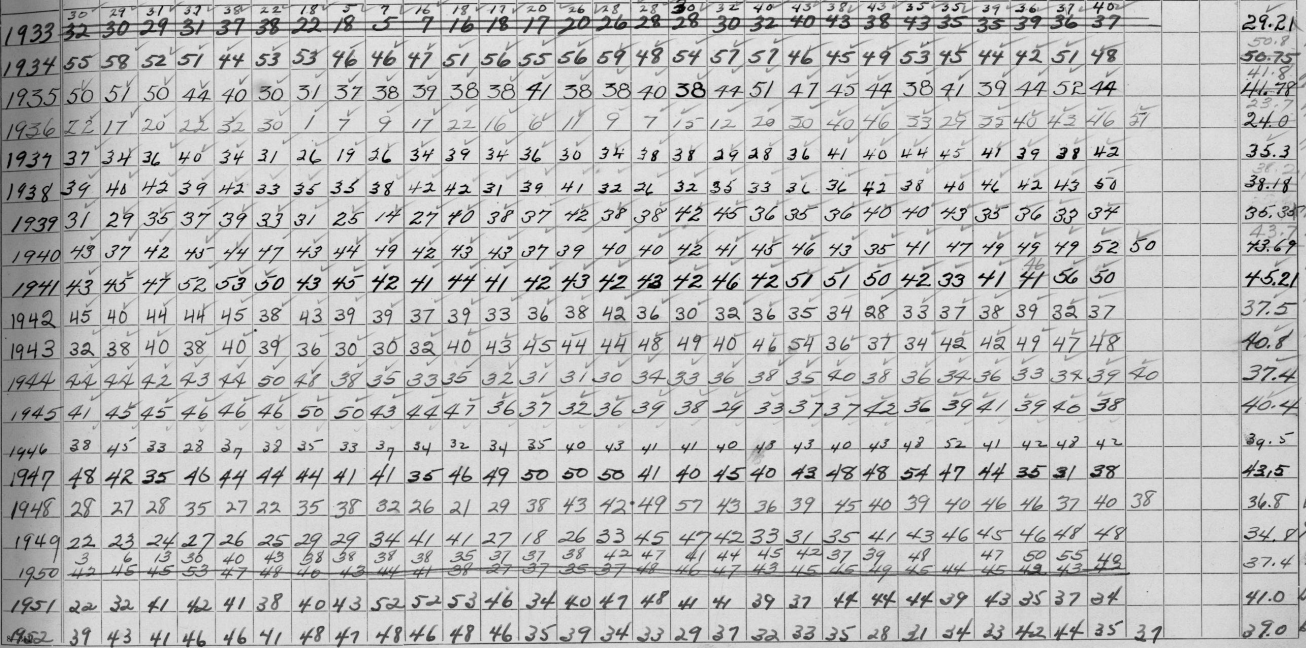 30 29 31 37 38 22 18 5 7 16 18 17 20 26 28 28 30 32 40 43 38 43 35 35 39 36 37 40
1933 32 30 29 31 37 38 22 18 5 7 16 18 17 20 26 28 28 30 32 40 43 38 43 35 35 39 36 37 29.21
50.8
1934 55 58 52 51 44 53 53 46 46 47 51 56 55 56 59 48 54 57 57 46 45 49 53 45 44 42 51 48 50.75
41.8
1935 50 51 50 44 40 30 31 37 38 39 38 38 41 38 38 40 38 44 51 47 45 44 38 41 39 44 52 44 41.78
23.7
1936 22 17 20 22 32 30 1 7 9 17 22 16 6 11 9 7 15 12 20 30 40 46 33 29 35 40 43 46 51 24.0
1937 37 34 36 40 34 31 26 19 26 34 39 34 36 30 34 38 38 29 28 36 41 40 44 45 41 39 38 42 35.3
1938 39 40 42 39 42 33 35 35 38 42 42 31 39 41 32 26 32 35 33 36 36 42 38 40 46 42 43 50 38.18
1939 31 29 35 37 39 33 31 25 14 27 40 38 37 42 38 38 42 45 36 35 36 40 40 43 35 36 33 34
43.7
1940 43 37 42 45 44 47 43 44 49 42 43 43 37 39 40 40 42 41 45 46 43 35 41 47 49 49 49 52 50 43.69
46
1941 43 45 47 52 53 50 43 45 42 41 44 41 42 43 42 43 42 46 42 51 51 50 42 33 41 41 56 50 45.21
1942 45 40 44 44 45 38 43 39 39 37 39 33 36 38 42 36 30 32 36 35 34 28 33 37 38 39 32 37 37.5
1943 32 38 40 38 40 39 36 30 30 32 40 43 45 44 44 48 49 40 46 54 36 37 34 42 42 49 47 48 40.8
1944 44 44 42 43 44 50 48 38 35 33 35 32 31 31 30 34 33 36 38 35 40 38 36 34 36 33 34 39 40 37.4
1945 41 45 45 46 46 46 50 50 43 44 47 36 37 32 36 39 38 29 33 37 37 42 36 39 41 39 40 38 40.4
1946 38 45 33 28 37 38 35 33 37 34 32 34 35 40 43 41 41 40 48 43 40 43 48 52 41 42 48 42 39.5
1947 48 42 35 46 44 44 44 41 41 35 46 49 50 50 50 41 40 45 40 43 48 48 54 47 44 35 31 38 43.5
1948 28 27 28 35 27 22 35 38 32 26 21 29 38 43 42 49 57 43 36 39 45 40 39 40 46 46 37 40 38 36.8
1949 22 23 24 27 26 25 29 29 34 41 41 27 18 26 33 45 47 42 33 31 35 41 43 46 45 46 48 48 34.8
3 6 13 30 40 43 38 38 38 38 35 37 37 38 42 47 41 44 45 42 37 39 48 47 50 55 49
1950 42 45 45 53 47 48 40 43 44 41 38 27 37 35 37 48 46 47 43 45 45 49 45 44 45 42 43 42 37.4
1951 22 32 41 42 41 38 40 43 52 52 53 46 34 40 47 48 41 41 39 37 44 44 44 39 43 35 37 34 41.0
1952 39 43 41 46 46 41 48 47 48 46 48 46 35 39 34 33 29 37 32 33 35 28 31 34 33 42 44 35 37 39.0